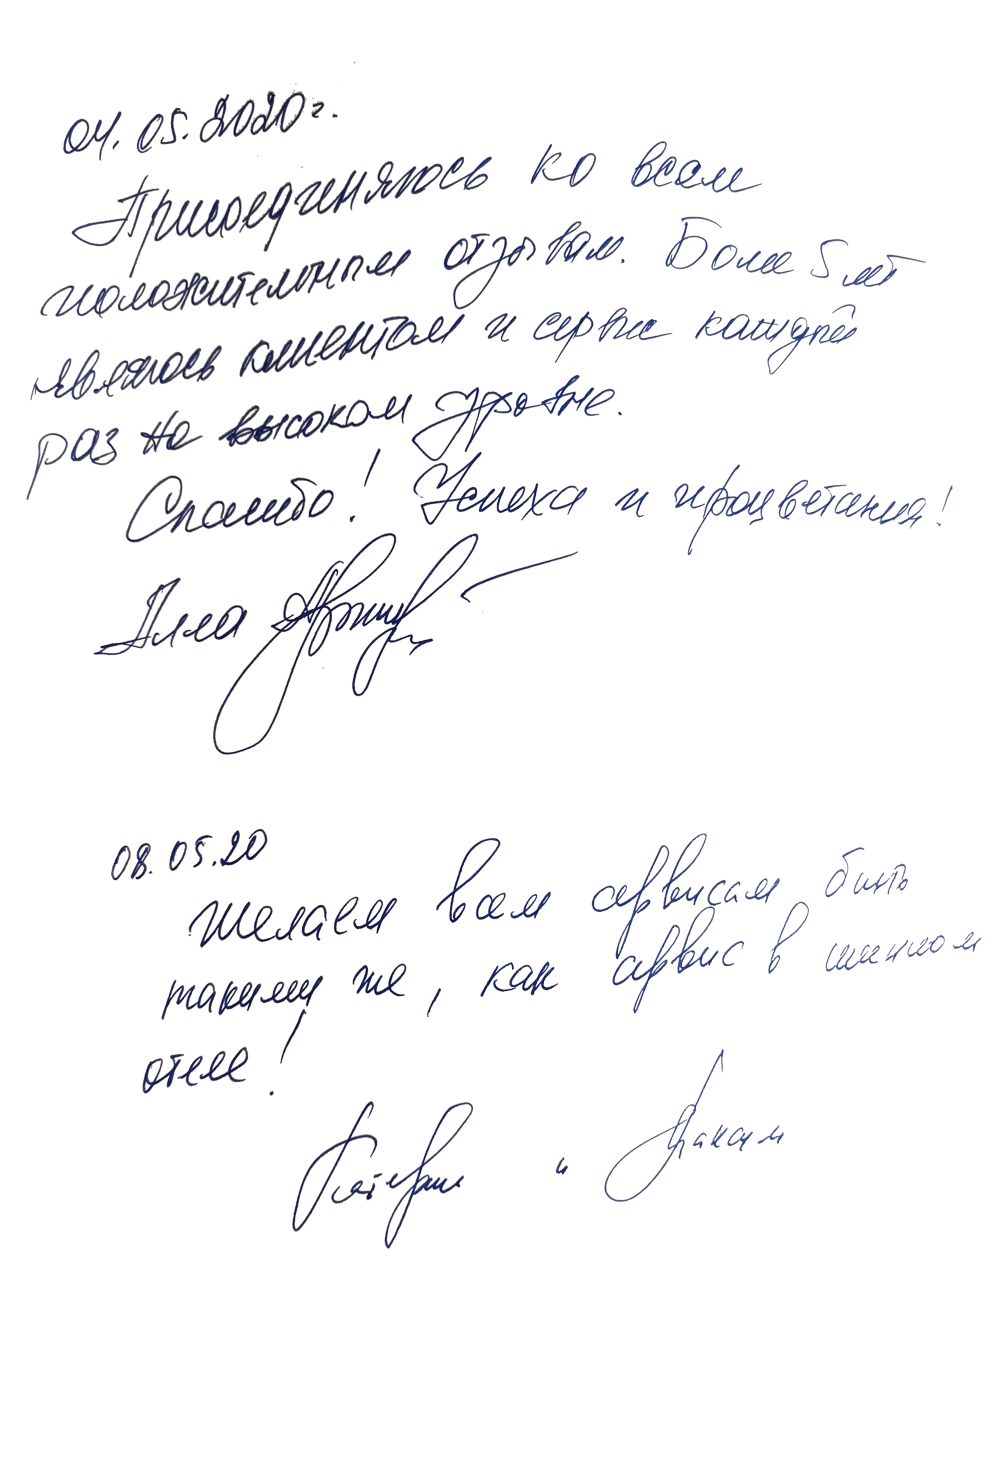 04.05.2020г.
Присоединяюсь ко всем
положительным отзывам. Более 5 лет
являюсь клиентом и сервис каждый
раз на высоком уровне.
Спасибо! Успеха и процветания!
Алла
08.05.20
Желаем всем сервисам быть
такими же, как сервис в шинном
отеле!
и Максим